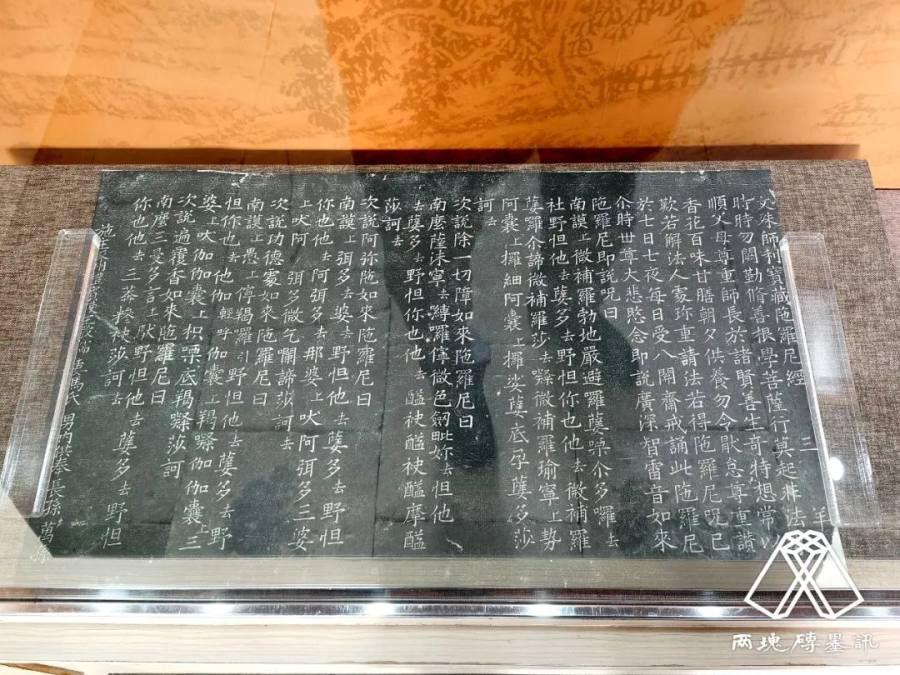 文殊師利寶藏陁羅尼經　三　羊
時時勿闕勤脩善根學菩薩行莫起非法以
順父母尊重師長於諸賢善生奇特想常以
香花百味甘膳朝夕供養勿令猒怠尊重讚
歎若解法人處珎重請法若得陁羅尼呪已
於七日七夜每日受八關齋戒誦此陁羅尼
尒時世尊大悲愍念即說廣深智雷音如來
陁羅尼即說呪曰
南謨上微補羅勃地嚴避囉蘖㗚尒多囉去
社野怛他去蘖多去野怛你也他去微補羅
蘖羅尒諦微補羅莎去微補羅瑜寧上勢
阿囊上擺細阿囊上擺娑蘖底孕蘖多莎
訶去
次說除一切障如來陁羅尼曰
南麼薩去囉儜微色劒毗妳去怛他
去蘖多去野怛你也他去醯被醯被醯摩醯
莎訶去
次說阿弥陁如來陁羅尼曰
南謨上弭多去婆去野怛他去蘖多去野怛
你也他去阿弭多去那婆上吠阿弭多三婆
上吠阿弭多微訖𠹌諦莎訶去
次說功德家如來陁羅尼曰
南謨上愚上停羯羅引野怛他去蘖多去野
怛你也他去他伽輕呼伽囊上羯㗚伽伽囊上三
婆上吠伽伽囊上枳㗚底羯㗚莎訶
次說遍覆香如來陁羅尼曰
南麼三曼多言上馱野怛他去蘖多去野怛
你也他去三莽被莎訶去
馬氏　男內　長孫萬
两塊磚墨訊